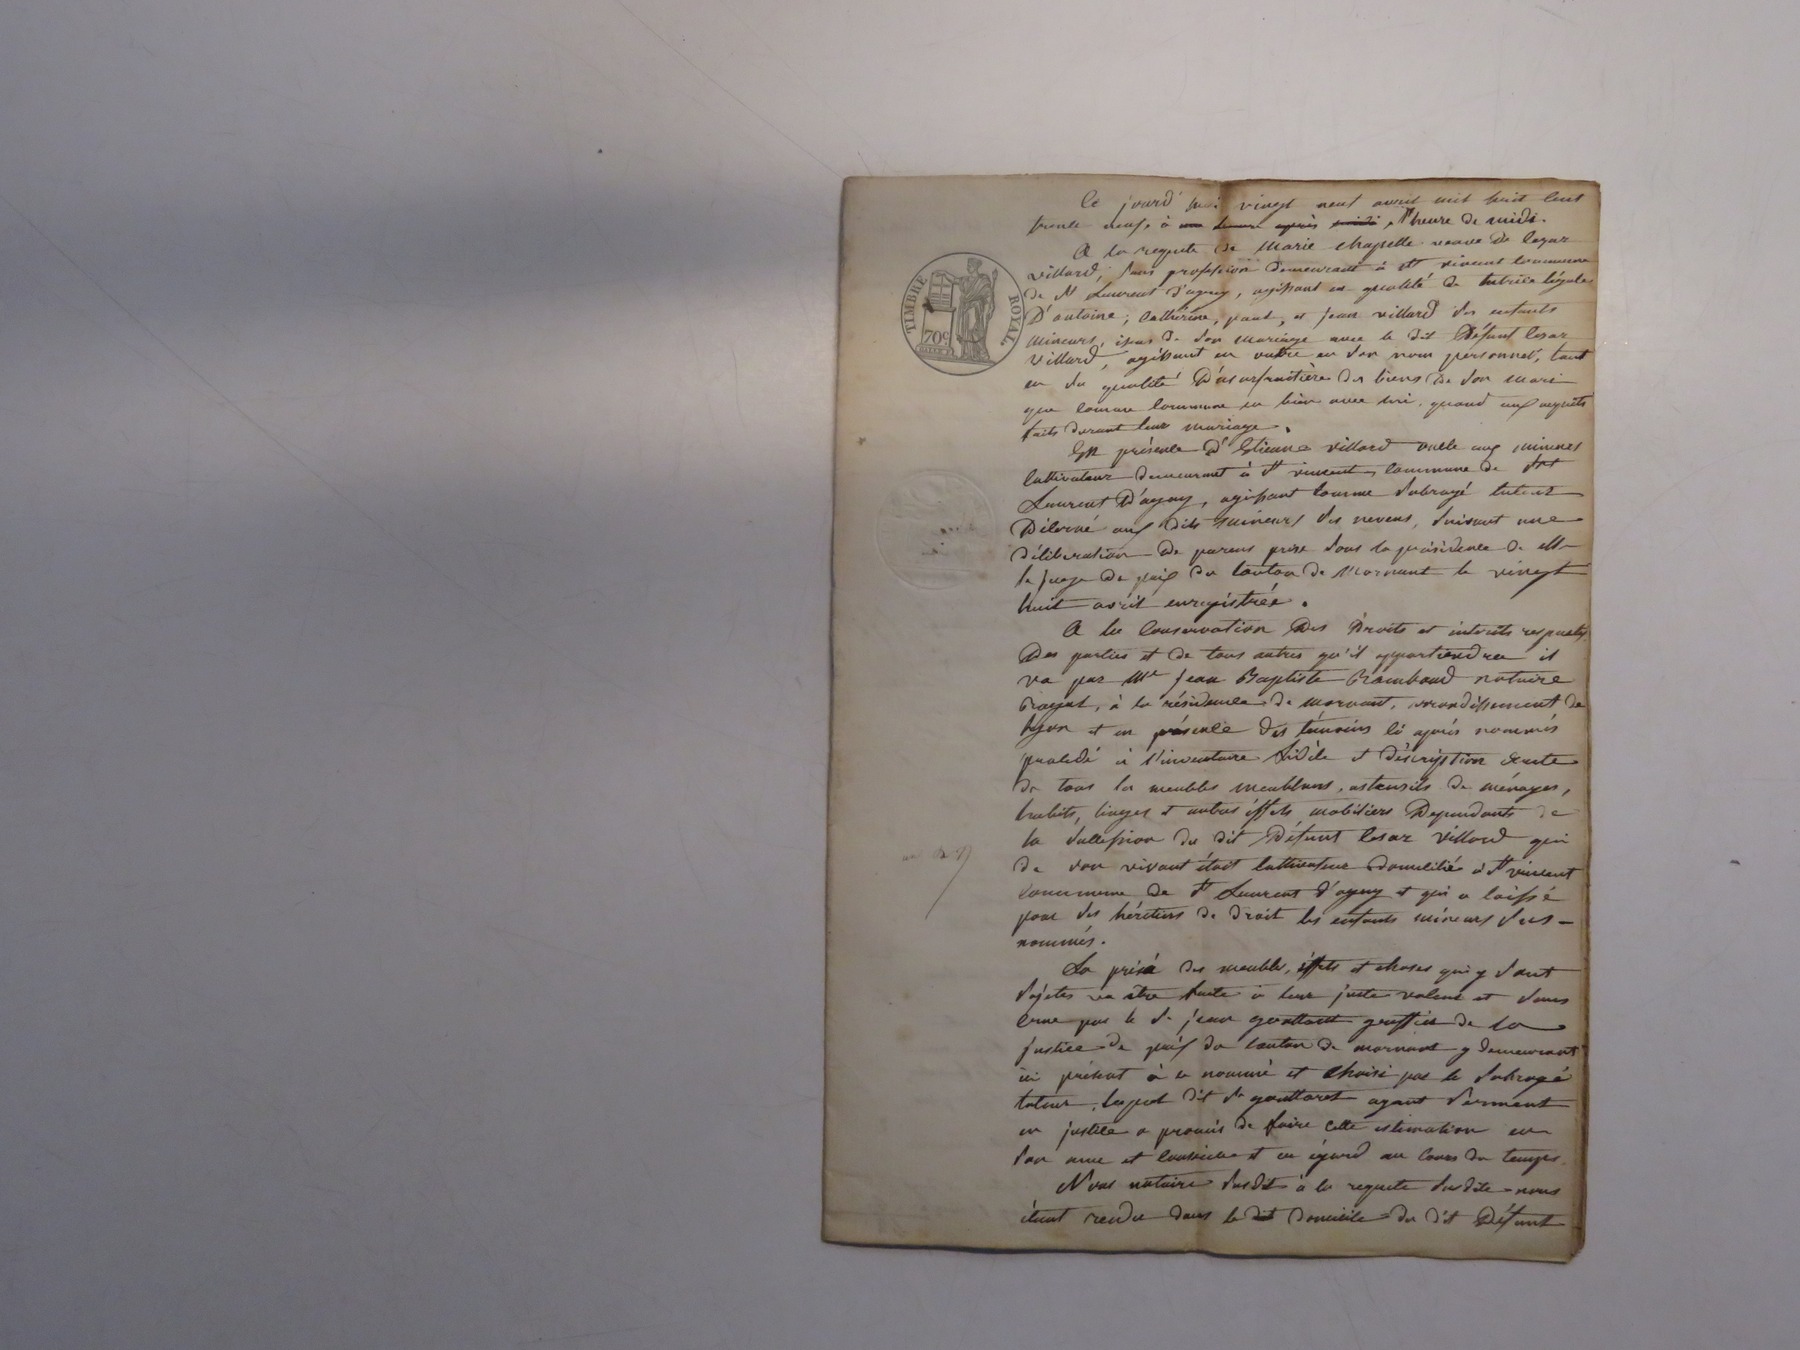 Ce jourd'hui vingt neuf avril mil huit cent
trente neuf, à une heure après midi, l'heure de midi.
A la requete de Marie chapelle veuve de Cezar
villard, sans profession demeurant à St vincent Commune
de St Laurent d'agny, agissant en qualité de tutrice légale
D'antoine, Catherine, et jean villard ses enfants
mineurs, issus de son mariage avec le dit Défunt Cesar
Villard, agissant en outre en son nom personnel, tant
en sa qualité D'usufruitière des biens de son mari
que comme Commune en bien avec lui, quand aux acquets
faits durant leur mariage.
En présence d'Etienne villard oncle aux mineurs
Cultivateur demeurant à St vincent, Commune de St
Laurent D'agny, agissant comme subrogé tuteur
Décerné aux dits mineurs ses neveux, suivant une
délibération de parens prise sous la présidence de Mr
le juge de paix du Canton de Mornant le vingt
huit avril enregistrée.
A la Conservation Des Droits et intérêts respectifs
Des parties et de tous autres qu'il appartiendra il
va par Me jean Baptiste notaire
Royal, à la résidence de mornant, arrondissement de
Lyon et en présence des témoins ci après nommés
procédé à l'inventaire fidèle et déscription exacte
de tous les meubles meublans, ustensils de ménages,
habits, linges et autres éffets mobiliers Dependants de
la Succession du dit Défunt Cesar Villard qui
de son vivant était Cultivateur domicilié à St vincent
commune de St Laurent d'agny et qui a laissé
pour ses héritiers de droit les enfants mineurs sus-
nommés.
La prisé des meubles, éffets et choses qui y sont
sujetes va être faite à leur juste valeur et sans
crue par le Sr jean greffier de la
justice de paix du Canton de mornant y demeurant
ici présent à ce nommé et choisi par le subrogé
tuteur, lequel dit Sr ayant serment
en justice a promis de faire cette estimation en
son ame et Conscience et eu égard au Cours du temps.
Nous notaire susdit à la requete susdite nous
étant rendu dans le dit domicile du dit Défunt
TIMBRE ROYAL
70c